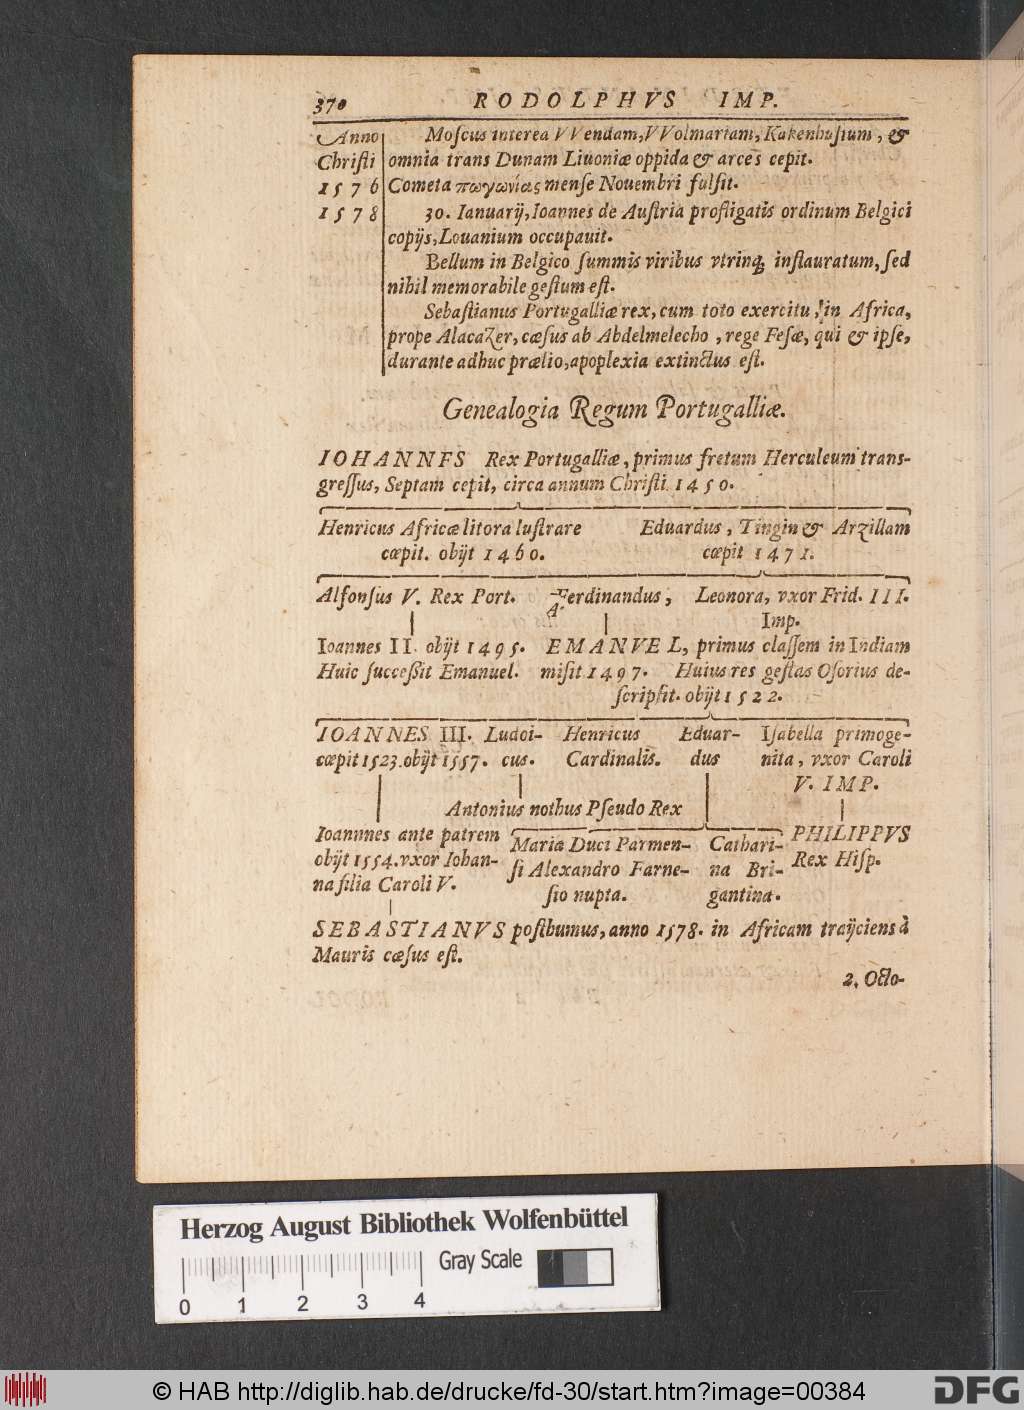 370 RODOLPHVS IMP.
Anno Moſcus interea VVendam, VVolmariam, Kakenhuſium, &
Chriſti omnia trans Dunam Liuoniæ oppida & arces cepit.
1576 Cometa πωγωνίας menſe Nouembri fulſit.
1578 30. Ianuarij, Ioannes de Auſtria profligatis ordinum Belgici
copijs, Louanium occupauit.
Bellum in Belgico ſummis viribus vtrinq; inſtauratum, ſed
nihil memorabile geſtum eſt.
Sebaſtianus Portugalliæ rex, cum toto exercitu, in Africa,
prope AlacaZer, cæſus ab Abdelmelecho, rege Feſæ, qui & ipſe,
durante adhuc prælio, apoplexia extinctus eſt.
Genealogia Regum Portugalliæ.
IOHANNES Rex Portugalliæ, primus fretum Herculeum trans-
greſſus, Septam cepit, circa annum Chriſti 1450.
Henricus Africæ litora luſtrare Eduardus, Tingin & Arzillam
cœpit. obijt 1460. cœpit 1471.
Alfonſus V. Rex Port. Ferdinandus, Leonora, vxor Frid. III.
A. Imp.
Ioannes II. obijt 1495. EMANVEL, primus claſſem in Indiam
Huic ſucceßit Emanuel. miſit 1497. Huius res geſtas Oſorius de-
ſcripſit. obijt 1522.
IOANNES III. Ludoi- Henricus Eduar- Iſabella primoge-
cœpit 1523. obijt 1557. cus. Cardinalis. dus nita, vxor Caroli
V. IMP.
Antonius nothus Pſeudo Rex
Ioannnes ante patrem Maria Duci Parmen- Cathari- PHILIPPVS
obijt 1554. vxor Iohan- ſi Alexandro Farne- na Bri- Rex Hiſp.
na filia Caroli V. ſio nupta. gantina.
SEBASTIANVS poſthumus, anno 1578. in Africam traijciens à
Mauris cæſus eſt.
2. Octo-
Herzog August Bibliothek Wolfenbüttel
Gray Scale
0 1 2 3 4
© HAB http://diglib.hab.de/drucke/fd-30/start.htm?image=00384
DFG